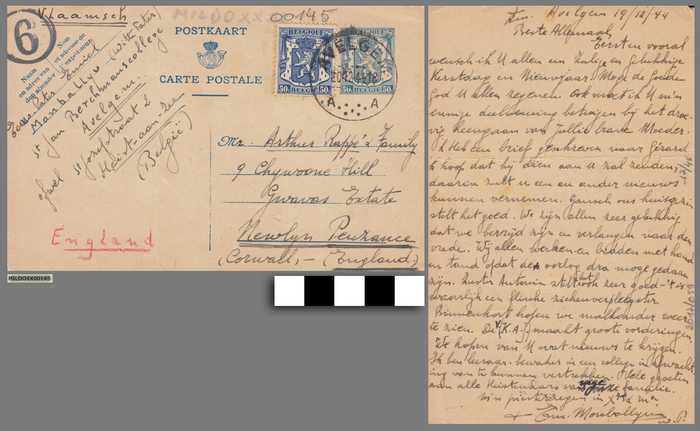 Vlaamsch
MILDOXX00145
6
POSTKAART
CARTE POSTALE
BELGIE
50c BELGIQUE 50c
AVELGEM
A A
Manballyu (Witte Pater)
St Jan Berchmanscollege
Avelgem
ofwel St Jozefstraat 2
Heist-aan-Zee
(België)
England
Mr. Arthur Rappé & Family
9 Chywoone Hill
Gwavas Estate
Newlyn Penzance
(Cornwall) - (England)
MILDOEXX00145
Avelgem 19/12/44
Beste Allemaal,
Eerst en vooral
wensch ik U allen een Zalige en gelukkige
Kerstdag en Nieuwjaar. Moge de Goede
God U allen zegenen. Ook moet ik U m'n
innige deelneming betuigen bij het droe-
vig heengaan van jullie brave Moeder.
Ik heb een brief geschreven naar Gerard
ik hoop dat hij dien aan U zal zenden,
daarin zult U een en ander nieuws
kunnen vernemen. Gansch ons huisgezin
stelt het goed. We zijn allen zeer gelukkig
dat we bevrijd zijn en verlangen naar den
vrede. Wij allen werken en bidden met hand
en tand opdat de oorlog dra moge gedaan
zijn. Zuster Antonia stelt het ook zeer goed - 't is
waarlijk een flinke ziekenverpleegster
Binnenkort hopen we malkander weer
te zien. De (K.A.) maakt groote vorderingen
We hopen van U wat nieuws te krijgen.
Ik ben leeraar-bewaker in een college in afwacht-
ing van te kunnen vertrekken. Vele groeten
aan alle Heistenaars van onze familie.
M'n priesterzegen in Xto & Ma